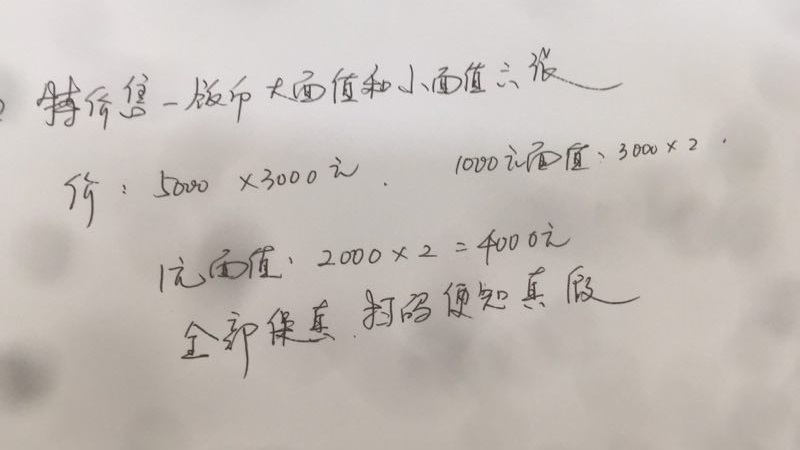 特价售一版币大面值和小面值六张
价：5000 ×3000元. 1000元面值、3000×2.
1元面值、2000×2=4000元
全部保真.扫码便知真假